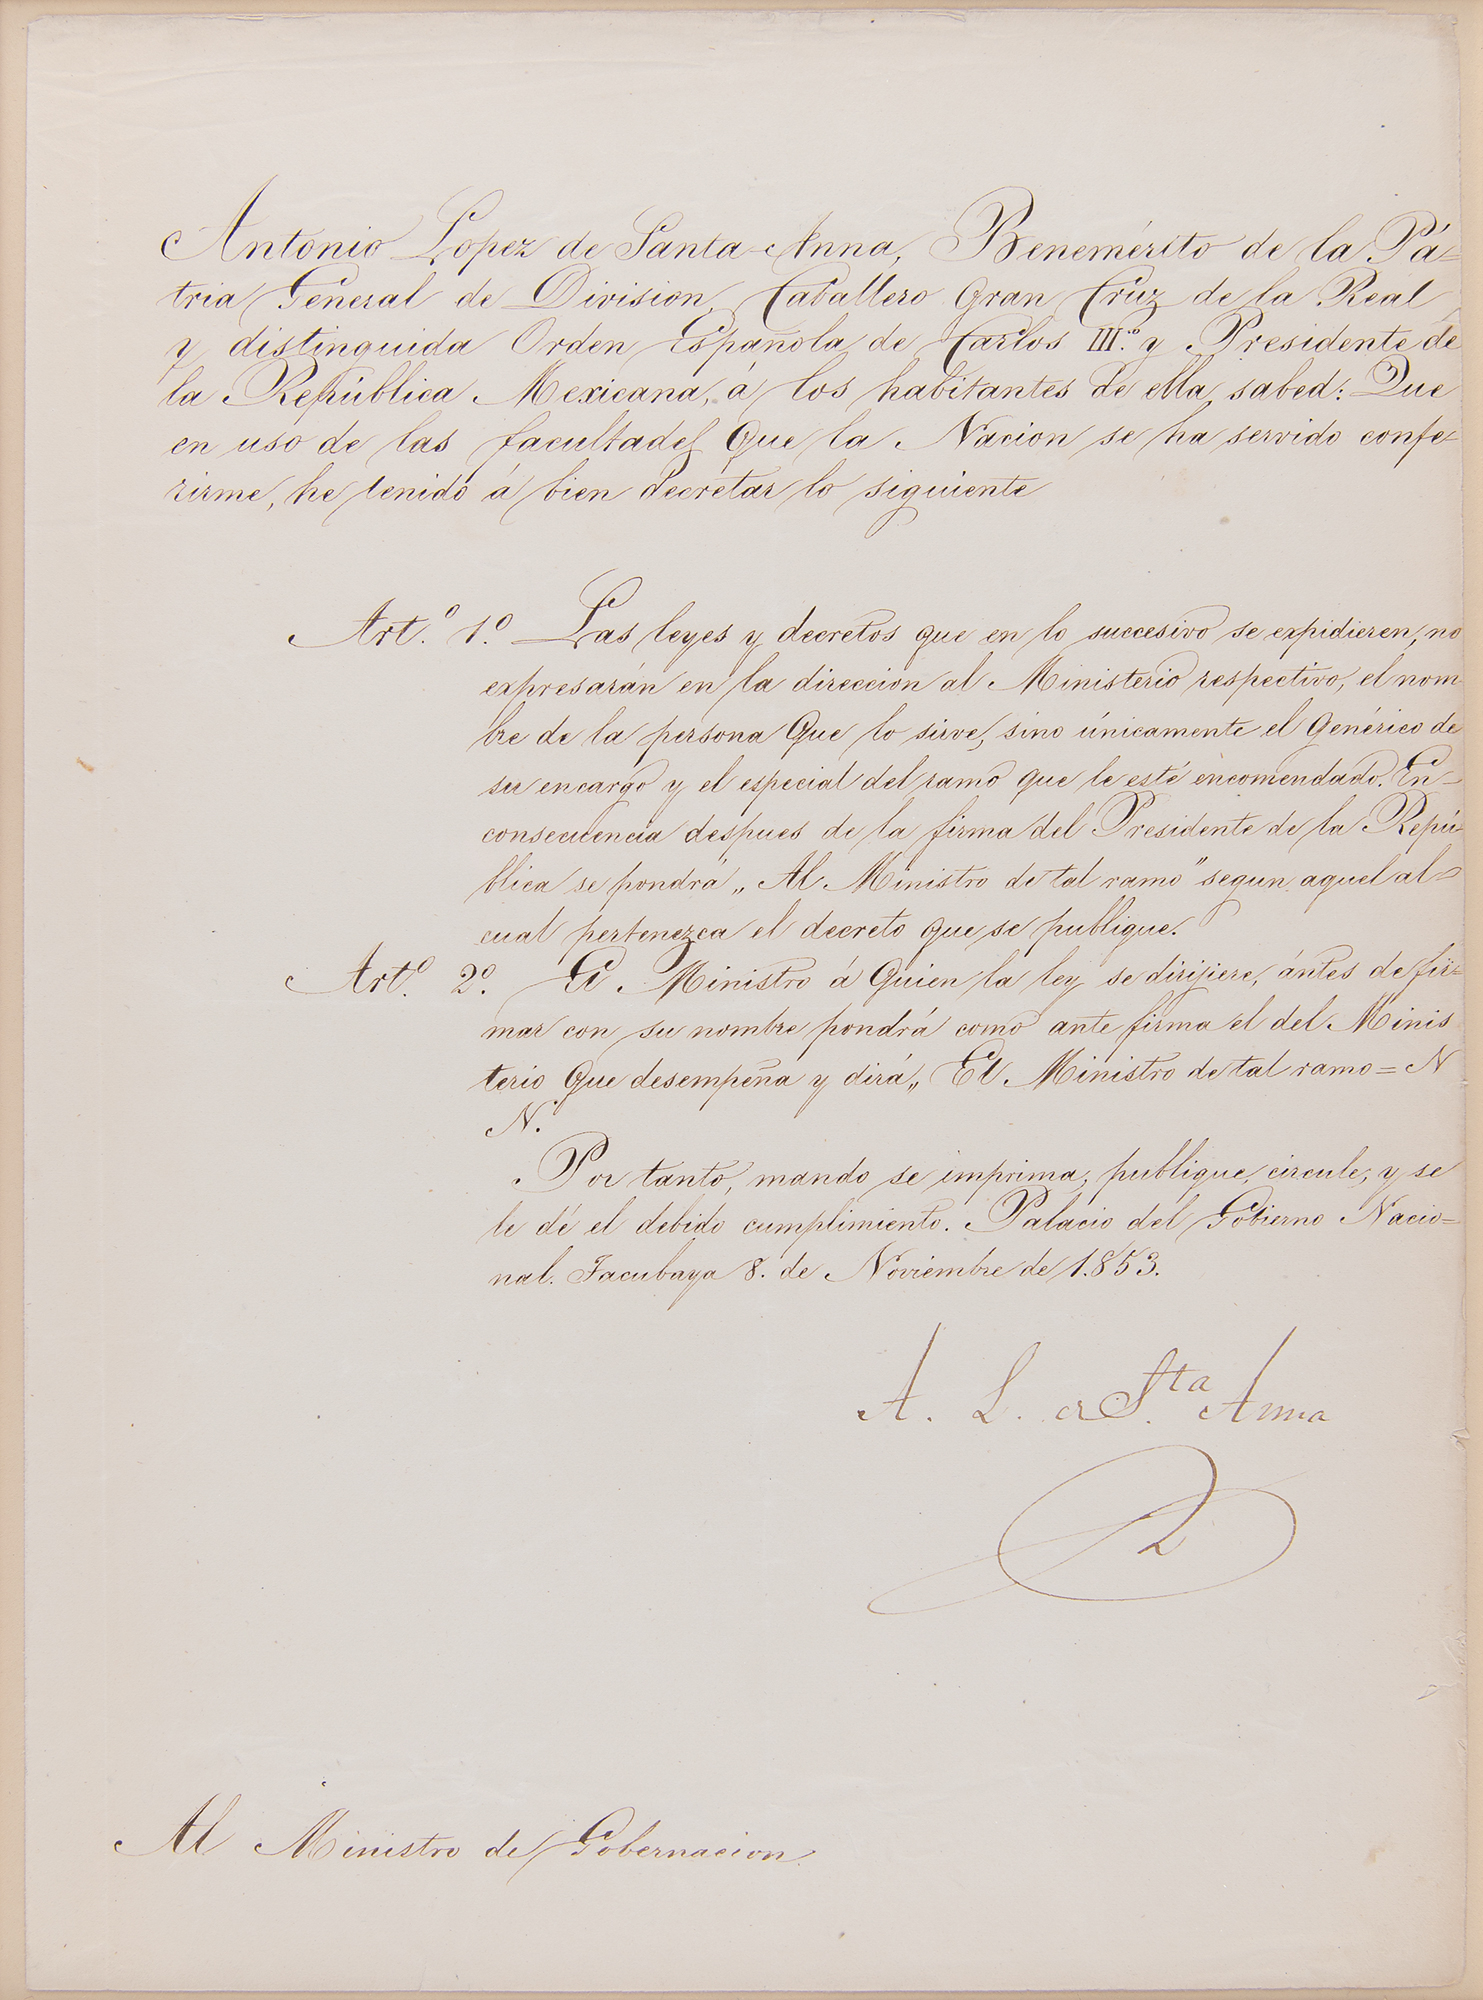 Antonio Lopez de Santa-Anna, Benemérito de la Pá-
tria General de Division, Caballero Gran Cruz de la Real
y distinguida Orden Española de Carlos III.º y Presidente de
la República Mexicana, á los habitantes de ella sabed: Que
en uso de las facultades que la Nacion se ha servido confe-
rirme, he tenido á bien decretar lo siguiente
Art.º 1.º Las leyes y decretos que en lo succesivo se expidieren, no
expresarán en la direccion al Ministerio respectivo, el nom-
bre de la persona que lo sirve, sino únicamente el genérico de
su encargo y el especial del ramo que le esté encomendado. En-
consecuencia despues de la firma del Presidente de la Repú-
blica se pondrá „ Al Ministro de tal ramo" segun aquel al-
cual pertenezca el decreto que se publique.
Art.º 2.º El Ministro á quien la ley se dirijiere, ántes de fir-
mar con su nombre pondrá como ante firma el del Minis
terio que desempeña y dirá „ El Ministro de tal ramo = N
N.
Por tanto, mando se imprima, publique, circule, y se
le dé el debido cumplimiento. Palacio del Gobierno Nacio-
nal. Tacubaya 8. de Noviembre de 1.853.
A. L. de S.ta Anna
Al Ministro de Gobernacion.